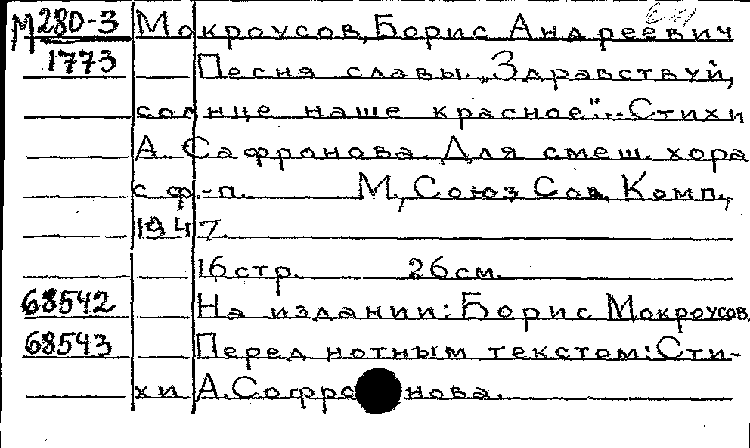 М 280-3 Мокроусов, Борис Андреевич
1773 Песня славы. "Здравствуй,
солнце наше красное".. Стихи
А. Сафронова. Для смеш. хора
с ф.-п. М., Союз Сов. Комп.,
1947.
16 стр. 26 см.
68542 На издании: Борис Мокроусов.
68543 Перед нотным текстом: Сти-
хи А. Софронова.